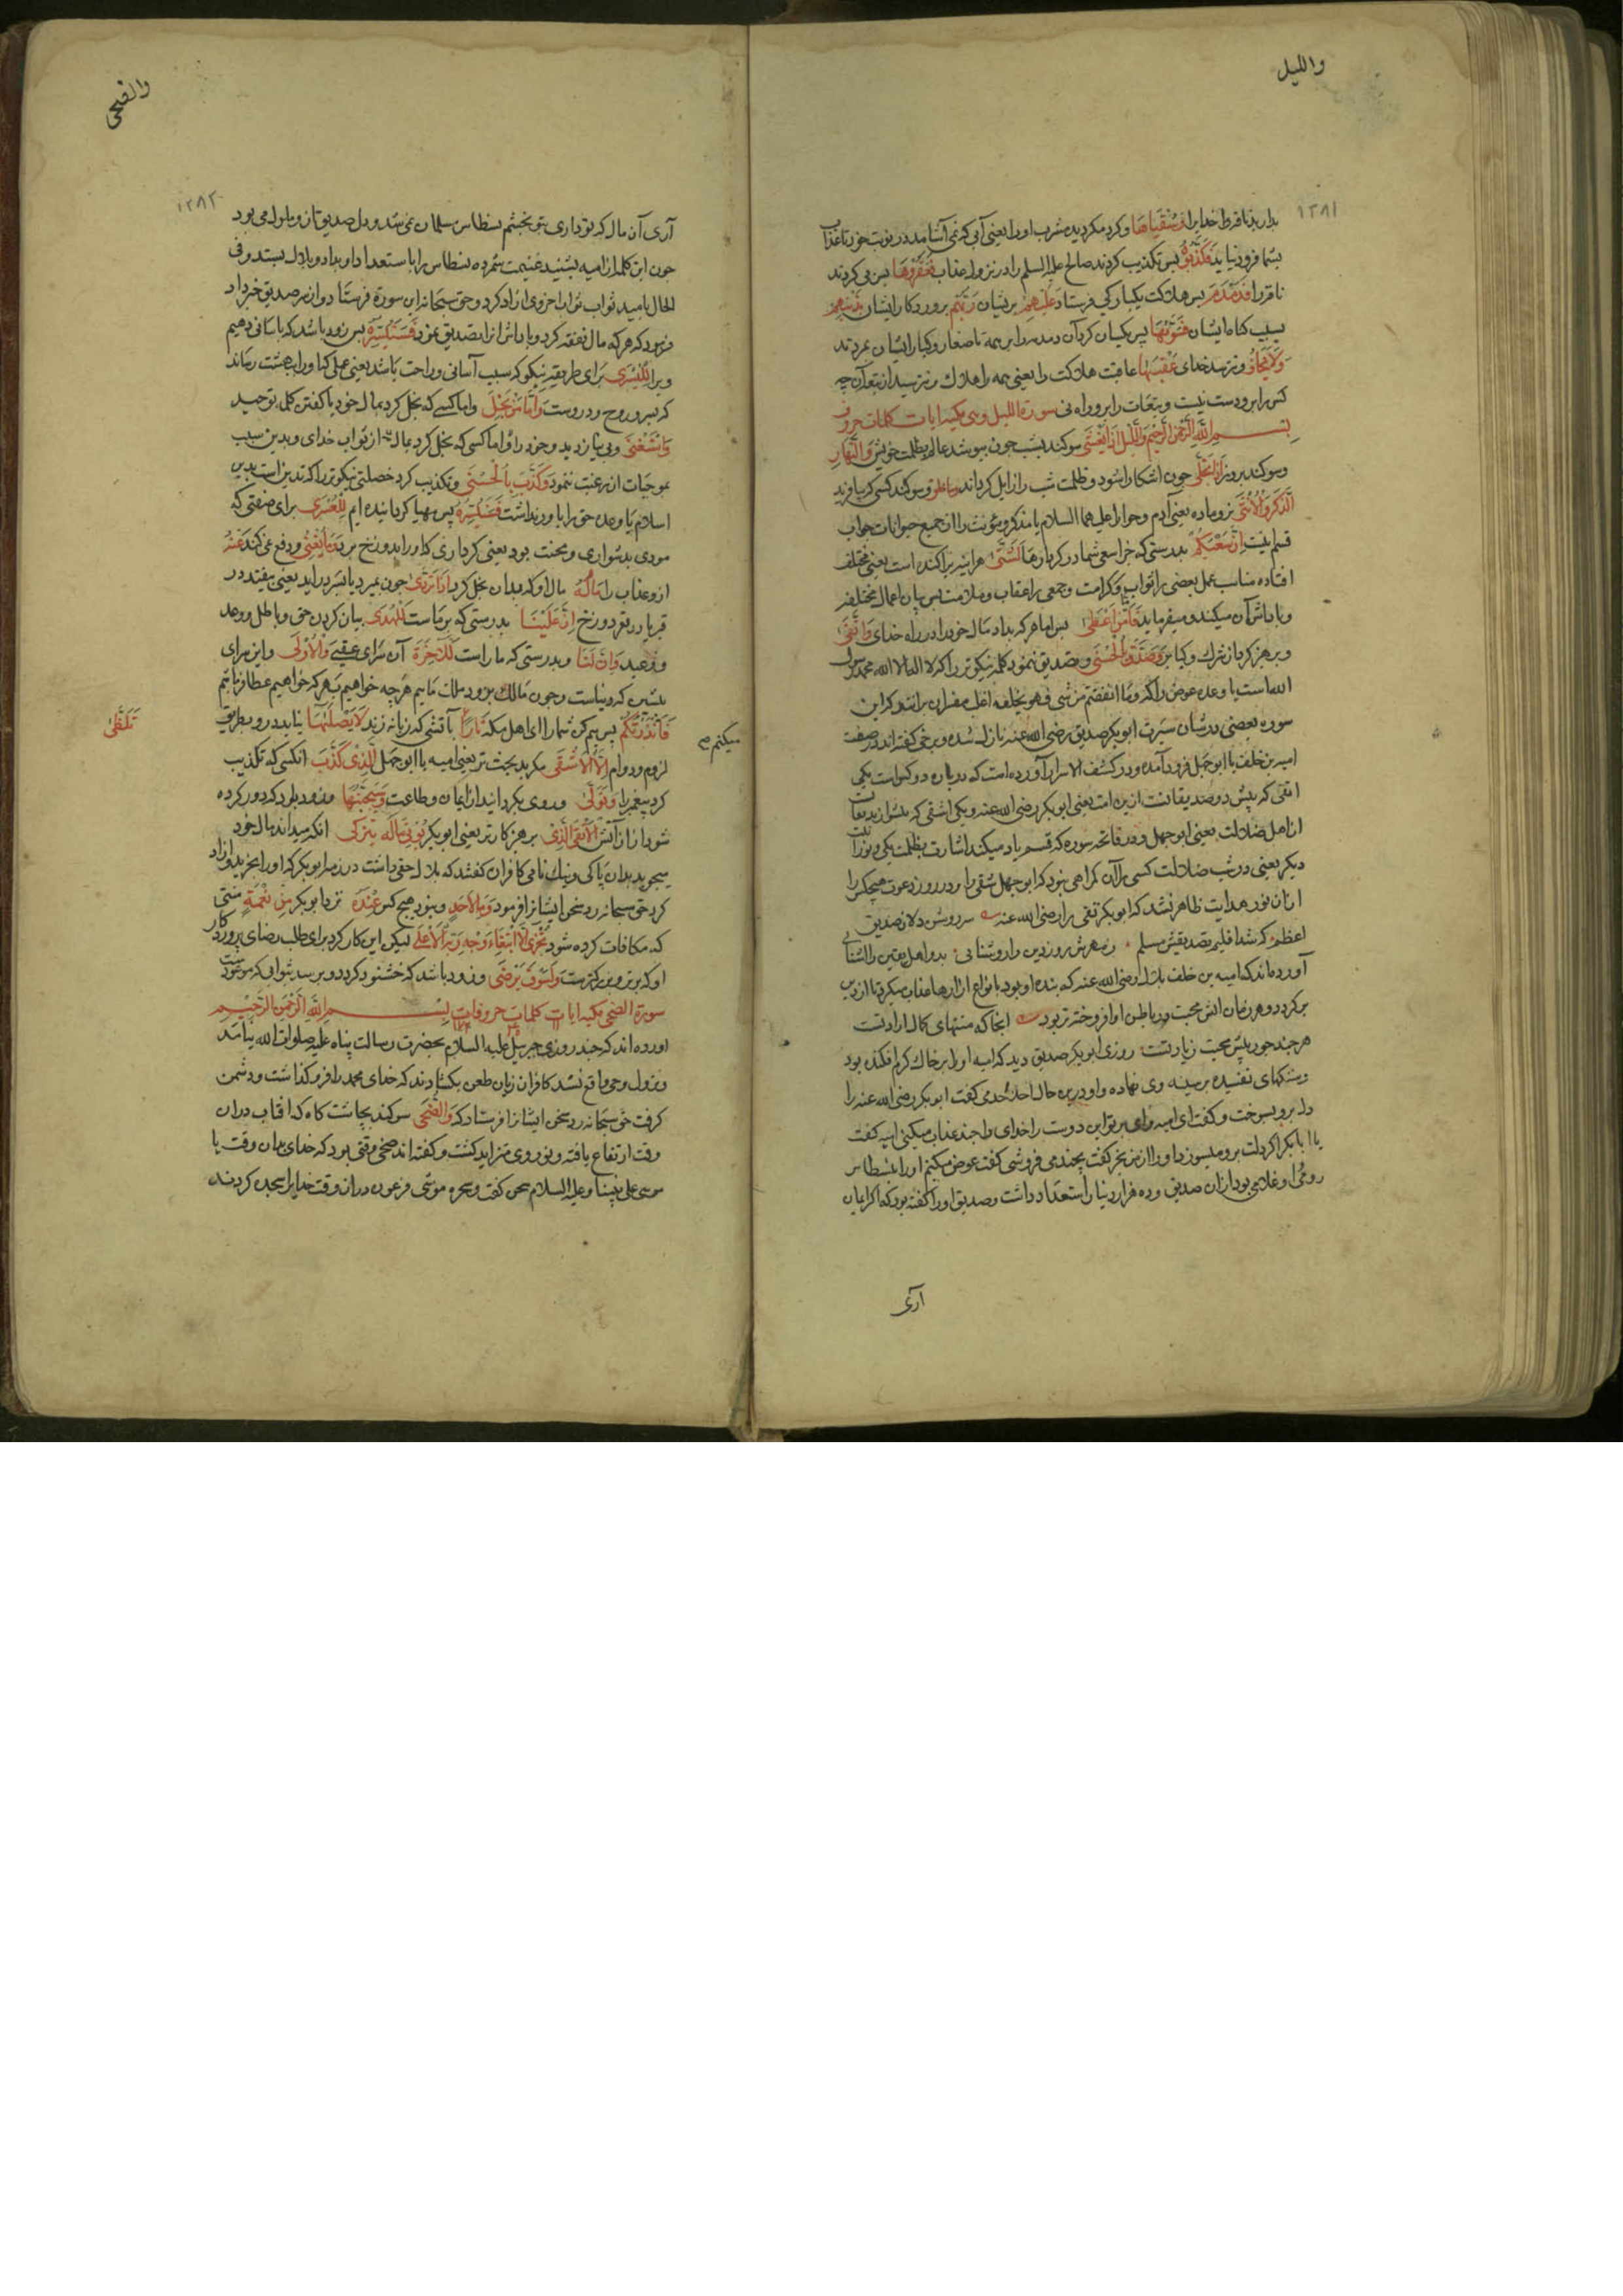 واللیل
۱۲۸۱
بدارید ناقهٔ خدایرا وَسُقْیَاهَا و کرد مکردید مشرب اورا یعنی آبی که می آشامد در نوبت خود تا عذاب
بشما فرود نیاید فَكَذَّبُوهُ پس تکذیب کردند صالح علیه السلم را در نزول عذاب فَعَقَرُوهَا پس پی کردند
ناقه را فَدَمْدَمَ پس هلاکت یکبارکی فرستاد عَلَيْهِمْ بریشان رَبُّهُمْ پروردکار ایشان بِذَنْبِهِمْ
بسبب کناه ایشان فَسَوّٰیهَا پس یکسان کرد آن دمدمه را بر همه تا صغار و کبار ایشان بمردند
وَلَا يَخَافُ و نترسد خدای عُقْبٰهَا عاقبت هلاکت را یعنی همه را هلاک کرد و نترسید از تبعه آن چه
کس را برو دست نیست و تبعات را برو راه نی سورة اللیل وهی مکیه ایات کلمات حروف
بِسْمِ اللّٰهِ الرَّحْمٰنِ الرَّحِيْمِ وَاللَّيْلِ اِذَا يَغْشٰى سوکند بشب چون بپوشد عالم بظلمت خویش وَالنَّهَارِ
وسوکند بروز اِذَا تَجَلّٰى چون اشکارا شود و ظلمت شب را زایل کرداند وَمَا خَلَقَ و سوکند کسی که بیافرید
الذَّكَرَ وَالْاُنْثٰى نر و ماده یعنی آدم و حوا را علیهما السلام یا مذکر و مؤنث را از جمیع حیوانات جواب
قسم اینست اِنَّ سَعْيَكُمْ بدرستی که جزا سعی شما در کردارها لَشَتّٰى هر اینه پراکنده است یعنی مختلف
افتاده مناسب عمل بعضی را ثواب و کرامت و جمعی را عقاب و ملامت پس بیان اعمال مختلفه
و پاداش آن میکند و میفرماید فَاَمَّا مَنْ اَعْطٰى پس اما هر که بداد مال خود را در راه خدای وَاتَّقٰى
و پرهیز کرد از شرک و کبایر وَصَدَّقَ بِالْحُسْنٰى و تصدیق نمود کلمه نیکوتر را که لا اله الا الله محمد رسول
الله است یا وعده عوض را که وما انفقتم من شی فهو یخلفه اغلب مفسران برانند که این
سوره بعضی در شان سیرت ابو بکر صدیق رضی الله عنه نازل شده و برخی کفته اند در صفت
امیه بن خلف یا ابو جهل فرود آمده و در کشف الاسرار آورده است که در باره دو کس است یکی
اتقی که پیش رو صدیقانست ازین امت یعنی ابو بکر رضی الله عنه و یکی اشقی که پیشوا زندیقان
از اهل ضلالت یعنی ابو جهل و در فاتحه سوره که قسم یاد میکند اشارت بظلمت یکی و نورانیت
دیکر یعنی در شب ضلالت کسی را آن کمراهی نبود که ابو جهل شقی را و در روز دعوت هیچکس را
از ان نور هدایت ظاهر نشد که ابو بکر تقی را رضی الله عنه
اعظم که شد اقلیم تصدیقش مسلم
آورده اند که امیه بن خلف بلال رضی الله عنه که بنده او بود بانواع ازارها عذاب میکرد تا از دین
برکردد و هر زمان اتش محبت در باطن او افروخته تر بود انجا که منتهای کمال ارادتست
هر چند جور بیش محبت زیادتست روزی ابو بکر صدیق دید که امیه او را بر خاک کرم افکنده بود
و سنکهای تفسیده بر سینه وی نهاده و او درین حال احد احد می کفت ابو بکر رضی الله عنه را
دل برو بسوخت و کفت ای امیه وای بر تو این دوست را خدای را چند عذاب میکنی امیه کفت
یا ابا بکر اکر دلت برو میسوزد او را از من بخر کفت بچند می فروشی کفت عوض میکنم او را بنسطاس
رومی و او غلامی بود از ان صدیق و ده هزار دینار استعداد داشت و صدیق او را کفته بود که اکر ایمان
آری
والضحی
۱۲۸۲
آری آن مال که تو داری بتو بخشم نسطاس مسلمان نمی شد و دل صدیق ازو ملول می بود
چون این کلمه از امیه بشنید غنیمت شمرده نسطاس را با استعداد او بداد و بلال بستد و فی
الحال بامید ثواب ثواب اخروی ازاد کرد و حق سبحانه این سورة فرستاد و از سر صدیق خبر داد
فرمود که هر که مال نفقه کرد و پاداش انرا تصدیق نمود فَسَنُيَسِّرُهُ پس زود باشد که باسانی دهیم
ویرا لِلْيُسْرٰى برای طریقه نیکو که سبب آسانی و راحت باشد یعنی عملی که او را ببهشت رساند
که سرور روح و دروست وَاَمَّا مَنْ بَخِلَ و اما کسی که بخل کرد بمال خود یا کفتن کلمه توحید
وَاسْتَغْنٰى و بی نیاز دید خود را و اما کسی که بخل کرد بمال از ثواب خدای و بدین سبب
بموجبات ان رغبت ننمود وَكَذَّبَ بِالْحُسْنٰى و تکذیب کرد خصلتی نیکوتر را که تدین است بدین
اسلام یا وعده حق را باور نداشت فَسَنُيَسِّرُهُ پس مهیا کردانیده ایم لِلْعُسْرٰى برای صفتی که
مودی بدشواری و محنت بود یعنی کرداری که او را بدوزخ برد وَمَا يُغْنِى و دفع نمی کند عَنْهُ
ازو عذاب را مَالُهُ مال او که بدان بخل کرد اِذَا تَرَدّٰى چون بمیرد یا بسر دراید یعنی بیفتد در
قبر یا در قعر دوزخ اِنَّ عَلَيْنَا بدرستی که بر ماست لَلْهُدٰى بیان کردن حق و باطل و وعد
و وعید وَاِنَّ لَنَا و بدرستی که ما راست لَلْاٰخِرَةَ آن سرای عقبی وَالْاُوْلٰى و این سرای
پیشین که دنیاست و چون مالک هر دو ملک ماییم هر چه خواهیم بهر که خواهیم عطا فرماییم
فَاَنْذَرْتُكُمْ پس بیم کردن شما را ای اهل مکه نَارًا بآتشی که زبانه زند لَا يَصْلٰیهَا نیاید درو بطریق
میکنم صح
تَلَظّٰى
لزوم و دوام اِلَّا الْاَشْقٰى مکر بدبخت تر یعنی امیه یا ابو جهل الَّذِیْ كَذَّبَ انکسی که تکذیب
کرد پیغمبر را وَتَوَلّٰى و روی بکردانید از ایمان و طاعت وَسَيُجَنَّبُهَا و زود بود که دور کرده
شود از ان آتش الْاَتْقَى الَّذِیْ پرهیزکارتر یعنی ابو بکر يُؤْتِیْ مَالَهُ يَتَزَكّٰى انکه میداند مال خود
میجوید بدان پاکی و نیک نامی کافران کفتند که بلال حقی داشت در ذمه ابو بکر که او را بخرید و ازاد
کرد حق سبحانه رد سخن ایشانرا فرمود وَمَا لِاَحَدٍ و نبود هیچ کس عِنْدَهُ نزد ابو بکر مِنْ نِعْمَةٍ منتی
که مکافات کرده شود تُجْزٰى اِلَّا ابْتِغَاءَ وَجْهِ رَبِّهِ الْاَعْلٰى لیکن این کار کرد برای طلب رضای پروردکار
او که برتر و بزرکترست وَلَسَوْفَ يَرْضٰى و زود باشد که خشنود کردد و برسد بثوابی که موعود اوست
سورة الضحی مکیه ایات کلمات حروفات بِسْمِ اللّٰهِ الرَّحْمٰنِ الرَّحِيْمِ
اورده اند که چند روزی جبرییل علیه السلام بحضرت رسالت پناه علیه صلوات الله نیامد
و نزول وحی واقع نشد کافران زبان طعن بکشادند که خدای محمد را فرو کذاشت و دشمن
کرفت حق سبحانه رد سخن ایشانرا فرستاد که وَالضُّحٰى سوکند بچاشت کاه که افتاب دران
وقت ارتفاع یافته و نور وی متزاید کشت و کفته اند ضحی وقتی بود که خدای بدان وقت با
موسی علی نبینا و علیه السلام سخن کفت و سحره موسی فرعون دران وقت خدایرا سجده کردند